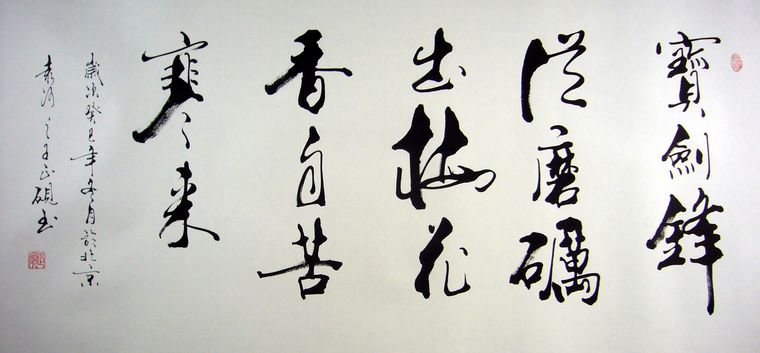 寶劍鋒
從磨礪
出梅花
香自苦
寒來
歲次癸巳年冬月於北京